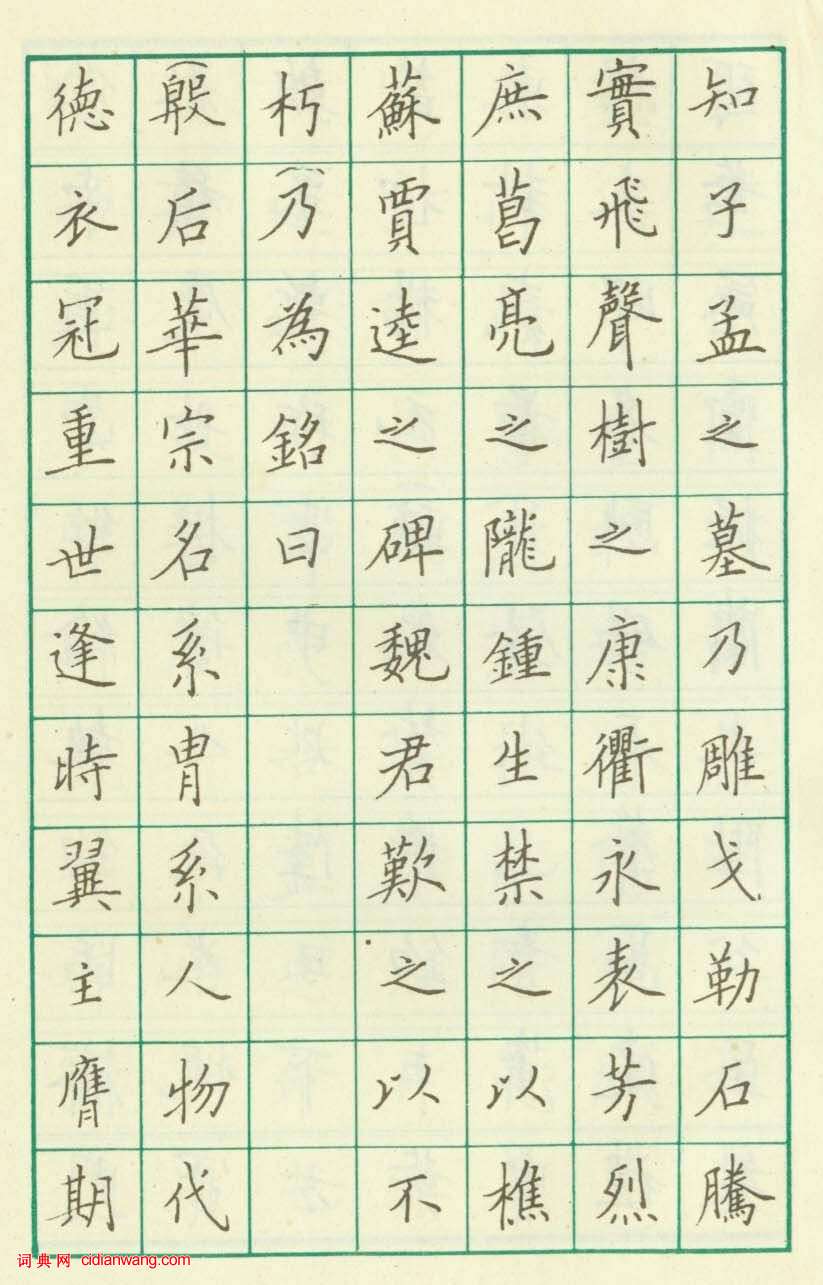 知子孟之墓乃雕戈勒石騰
實飛聲樹之康衢永表芳烈
庶葛亮之隴鍾生禁之以樵
蘇賈逵之碑魏君歎之以不
朽(乃)為銘曰
(殷)后華宗名系胄系人物代
德衣冠重世逢時翼主膺期
词典网 cidianwang.com